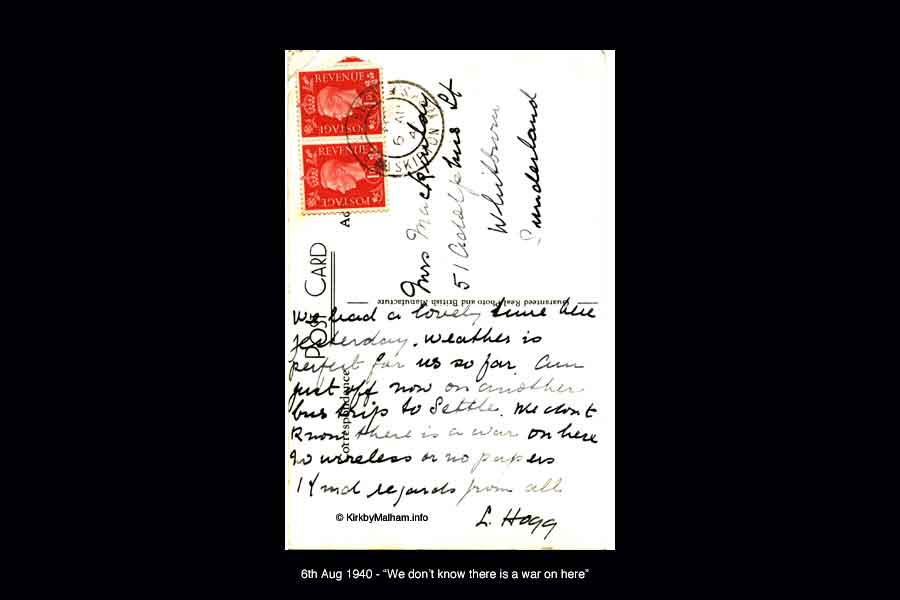 REVENUE
POSTAGE
REVENUE
POSTAGE
SKIPTON
6 AU
POST CARD
Correspondence
Guaranteed Real Photo and British Manufacture
Mrs
51 Adolphus St
Whitburn
Sunderland
We had a lovely time here
yesterday. Weather is
perfect for us so far. Am
just off now on another
bus trip to Settle. We dont
know there is a war on here
No wireless or no papers
Kind regards from all
L. Hogg
© KirkbyMalham.info
6th Aug 1940 - “We don’t know there is a war on here”